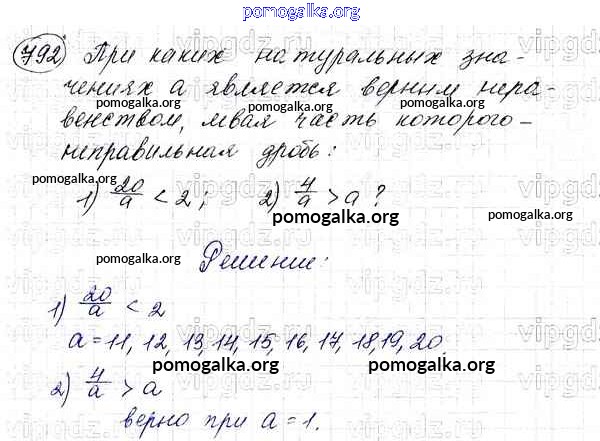 pomogalka.org
792) При каких натуральных зна-
чениях a является верным нера-
pomogalka.org pomogalka.org
венством, левая часть которого -
неправильная дробь:
pomogalka.org
1) 20/a < 2; 2) 4/a > a ?
pomogalka.org pomogalka.org
pomogalka.org Решение: pomogalka.org
1) 20/a < 2
a = 11, 12, 13, 14, 15, 16, 17, 18, 19, 20
pomogalka.org pomogalka.org
2) 4/a > a
верно при a = 1.